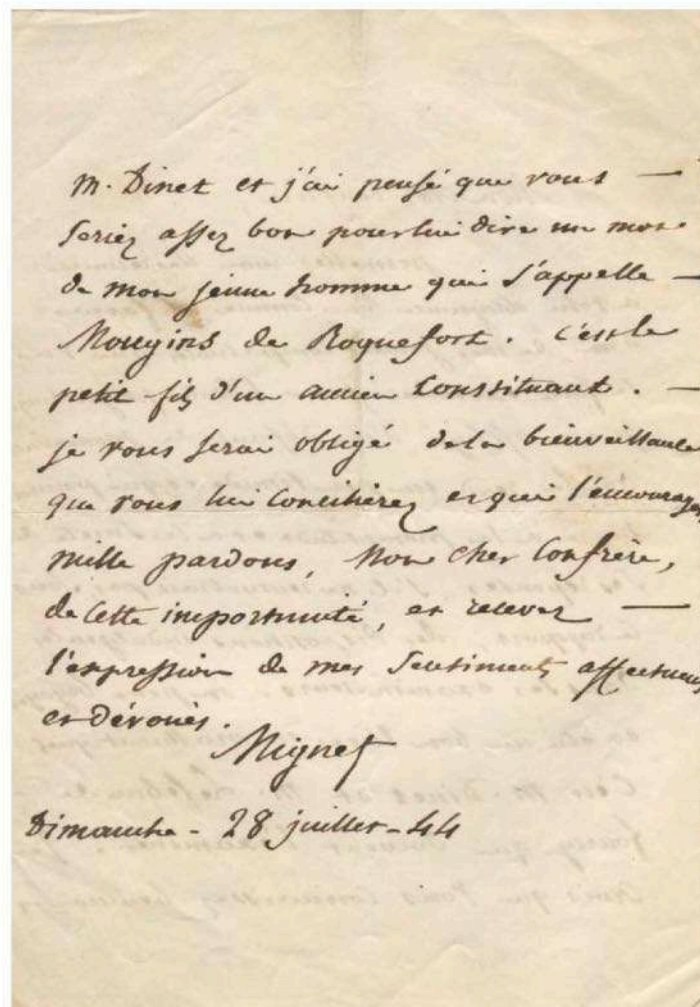 M. Dinet et j'ai pensé que vous —
seriez assez bon pour lui dire un mot
de mon jeune homme qui s'appelle —
Mougins de Roquefort. C'est le
petit fils d'un ancien Constituant. —
je vous serai obligé de la bienveillance
que vous lui concilierez et qui l'encouragera
mille pardons, Mon cher Confrère,
de cette importunité, et recevez —
l'expression de mes Sentiments affectueux
et dévoués.
Mignet
Dimanche - 28 juillet - 44